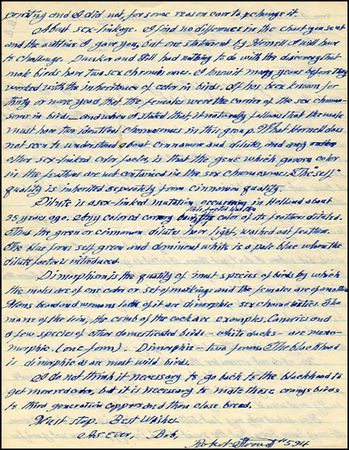 printing and I did not, for some reason care to change it.
About sex-linkage. I find no differences in the chart you sent
and the outline I gave you, but one statement by Hornel I will have
to challenge. Dunker and Hill had nothing to do with the discovery that
male birds have two sex chromosomes. I knew it many years before they
worked with the inheritance of color in birds. It has been known for
thirty or more years that the females were the carrier of the sex chromo-
somes in birds — and when it stated that it naturally follows that the male
must have two identical chromosomes in this group. What Hornel does
not seem to understand about cinnamon and dilute, and any
other sex-linked color factor, is that the gene which govern color
in the feathers are not contained in the sex chromosomes. The "self"
quality is inherited separately from cinnamon quality.
Dilute is a sex-linked mutation occurring in Holland about
25 years ago. Any colored canary the color of its feathers diluted.
Thus the green or cinnamon dilutes have light, washed out feathers.
The blue, fawn self, green and dominant white is a pale blue when the
dilute factor is introduced.
Dimorphism is the quality of most species of birds by which
the males are of one color or self markings and the females are of another.
Mens beard and womans lack of it are dimorphic sex characteristics. The
mane of the lion, the comb of the cock are examples. Canaries and
a few species of other domesticated birds — white ducks — are mono-
morphic. (one form). Dimorphic — two forms. The blackhood
is dimorphic as are most wild birds.
I do not think it necessary to go back to the blackhood to
get more red color, but it is necessary to mate those orange birds
to third generation coppers and then close breed.
Must stop. Best Wishes
As Ever, Bob,
Robert Stroud #594